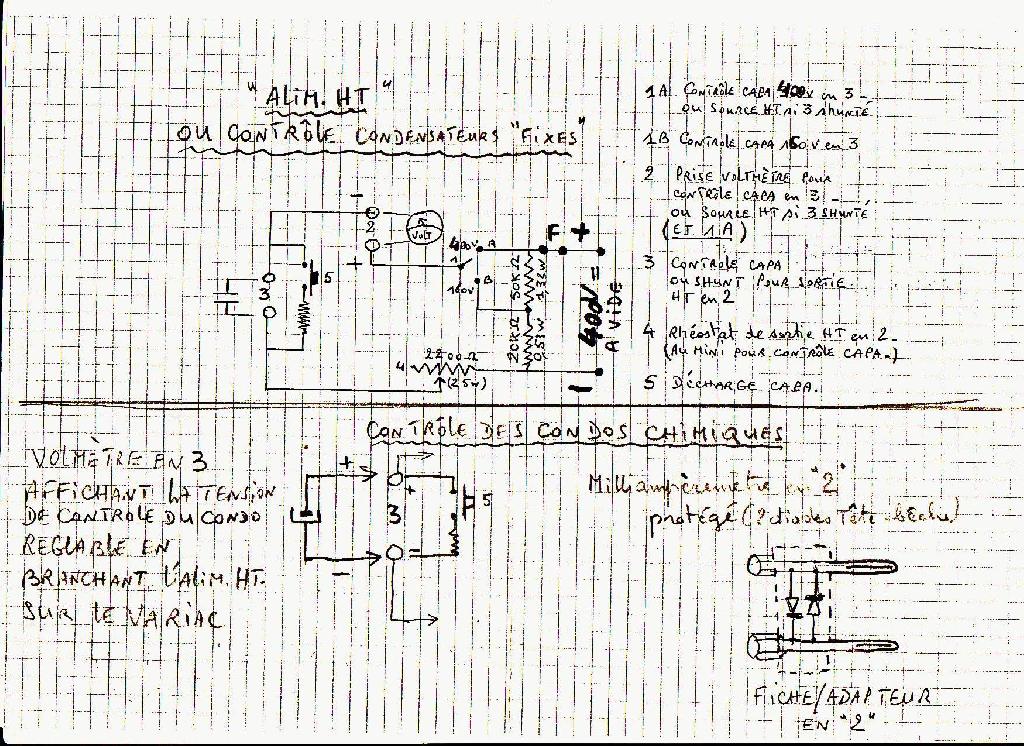 "ALIM. HT"
OU CONTRÔLE CONDENSATEURS "FIXES"
1A CONTRÔLE CAPA 400V en 3 -
OU SOURCE HT si 3 shunté
1B CONTROLE CAPA 150V en 3
2 PRISE VOLTMÈTRE POUR
CONTRÔLE CAPA en 3 -
OU SOURCE HT si 3 SHUNTÉ
(ET 1A)
3 CONTROLE CAPA
OU SHUNT POUR SORTIE
HT en 2
4 Rhéostat de sortie HT en 2 -
(AU MINI POUR CONTRÔLE CAPA -)
5 DÉCHARGE CAPA.
-
2
VOLT
+
3
5
400V
A
1
B
150V
50K Ω
1,33W
20K Ω
0,53W
F
+
400V =
A VIDE
-
4
2200 Ω
(25W)
CONTRÔLE DES CONDOS CHIMIQUES
VOLMÈTRE EN 3
AFFICHANT LA TENSION
DE CONTROLE DU CONDO
REGLABLE EN
BRANCHANT L'ALIM. HT.
SUR LE VARIAC
+
+
3
5
-
-
Milliampèremètre en "2"
protégé (2 diodes Tête-bêche)
FICHE/ADAPTEUR
EN "2"